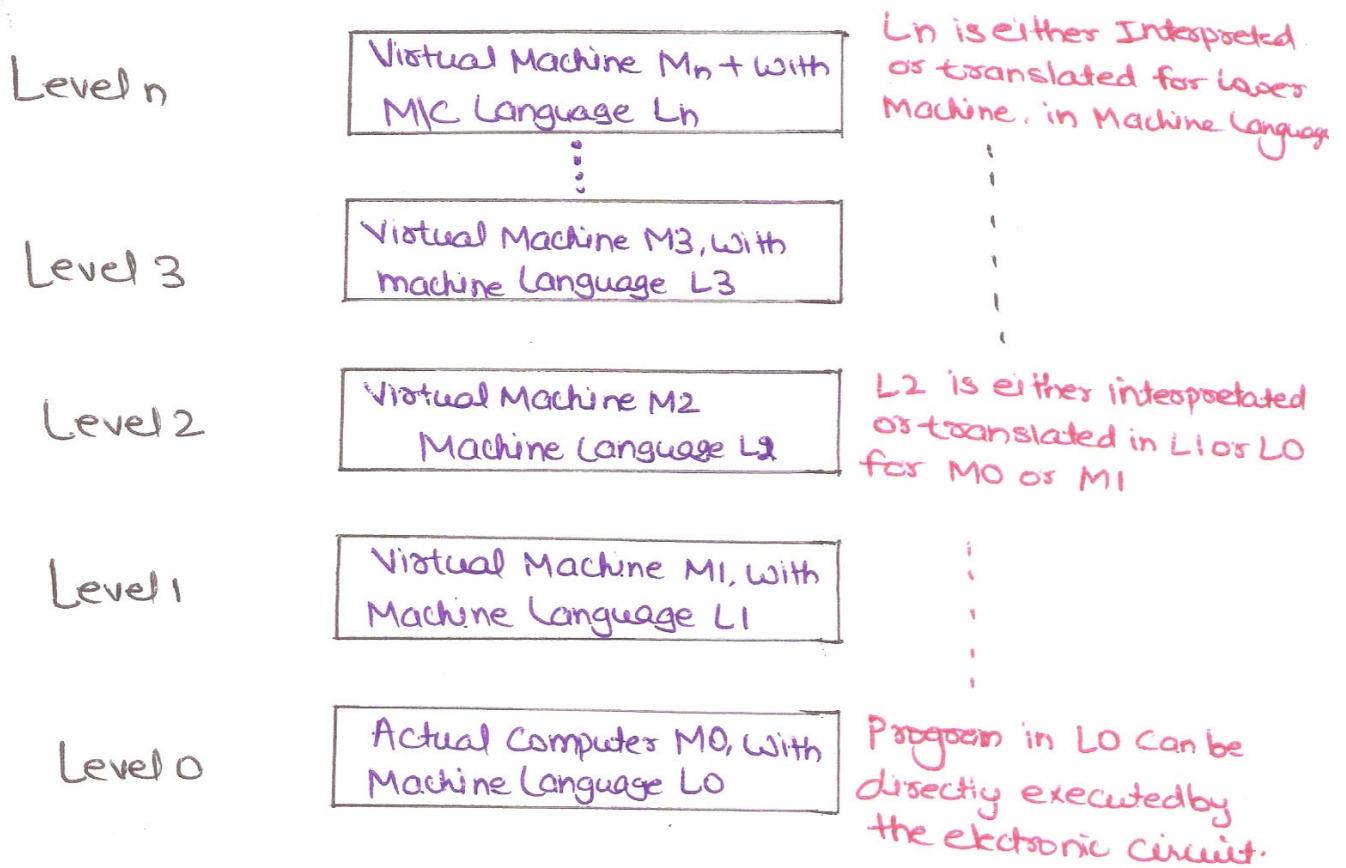 Level n
Virtual Machine Mn + with
M/C Language Ln
Ln is either Interpreted
or translated for lower
Machine, in Machine Language
Level 3
Virtual Machine M3, with
machine Language L3
Level 2
Virtual Machine M2
Machine Language L2
L2 is either interpretated
or translated in L1 or L0
for M0 or M1
Level 1
Virtual Machine M1, with
Machine Language L1
Level 0
Actual Computer M0, with
Machine Language L0
Program in L0 can be
directly executed by
the electronic circuit.